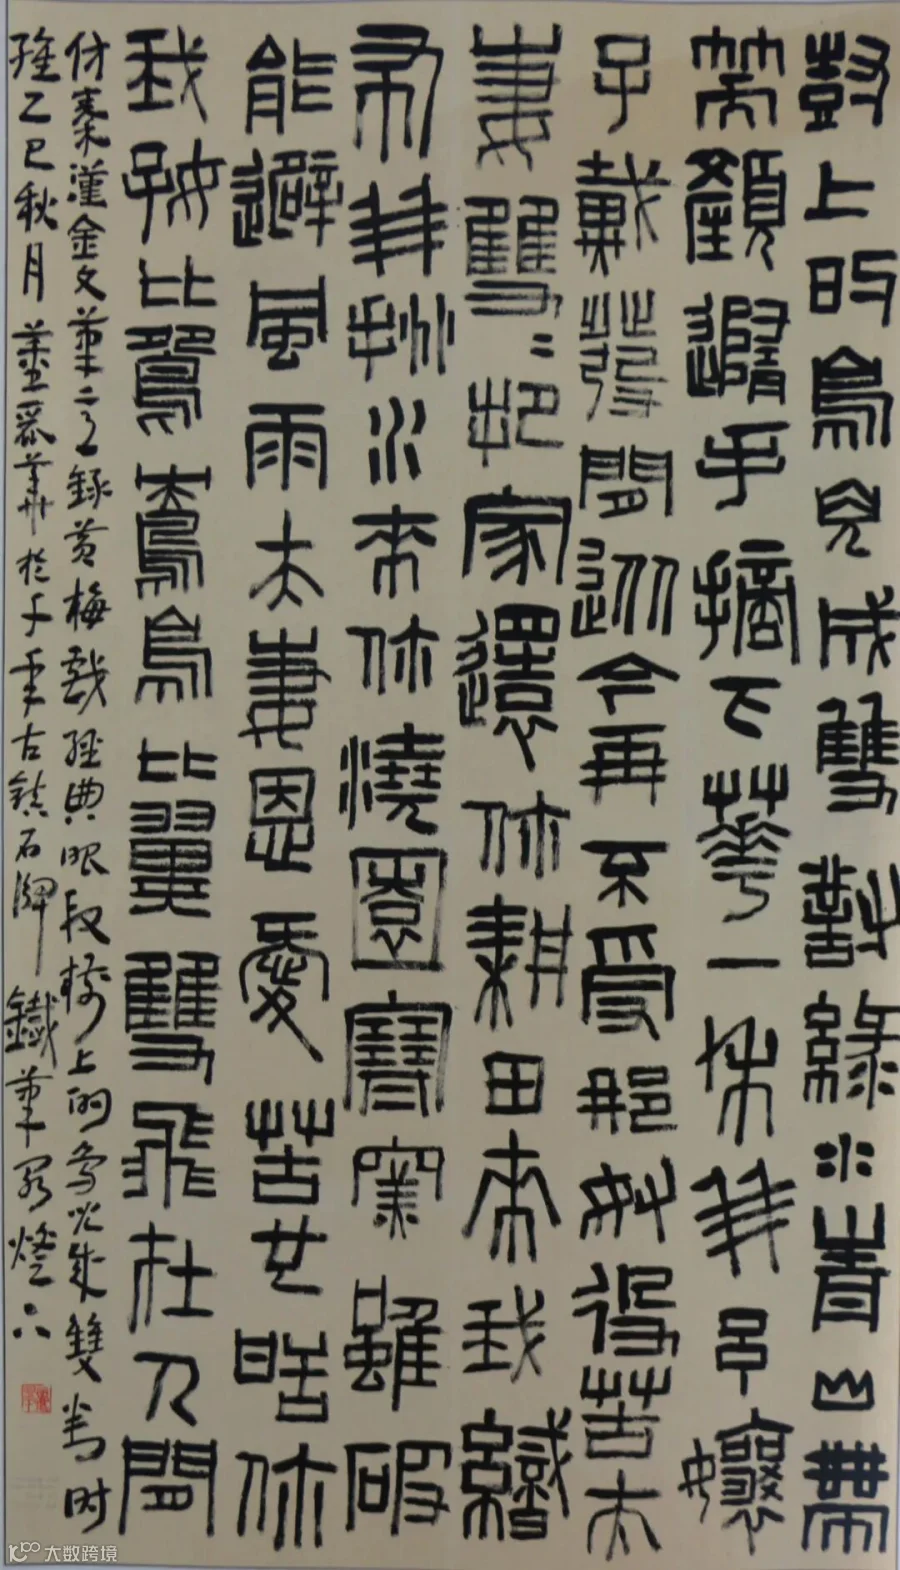 尌上的鳥兒成雙對綠水青山帶
笑顏隨手摘下華一朵我㠯孃
子戴髮間從今再不受那奴役苦夫
妻雙〻把家還你耕田來我織
布我挑水來你澆園寒窯雖破
能避風雨夫妻恩愛苦也甜你
我好比鴛鴦鳥比翼雙飛在人間
仿秦漢金文筆意錄黃梅戲經典唱段樹上的鳥兒成雙對時
維乙巳秋月於千年古鎮石牌鐵筆燈下
大数跨境